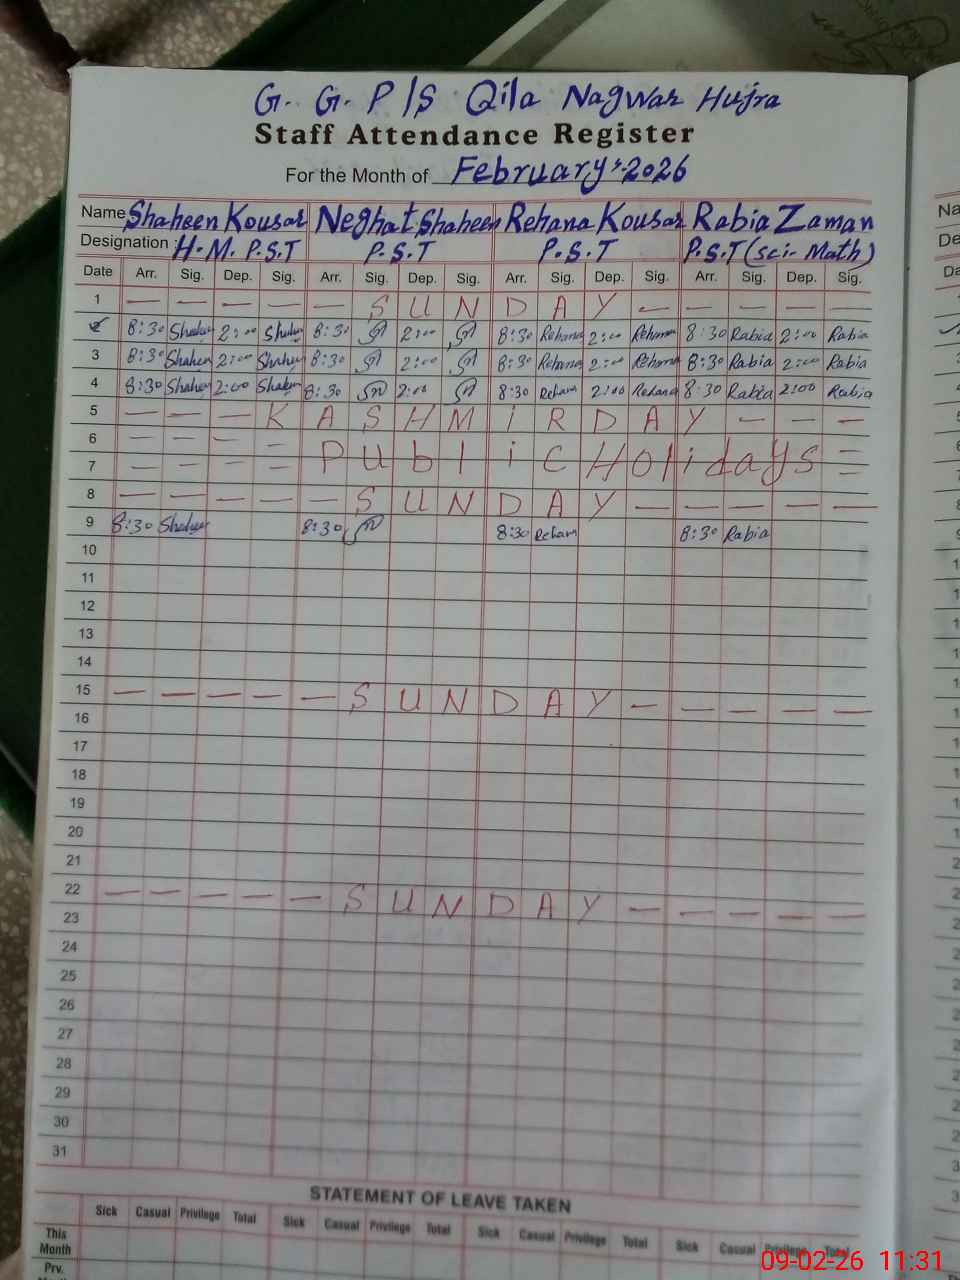 G. G. P/S Qila Nagwar Hujra
Staff Attendance Register
For the Month of February,2026
Name Shaheen Kousar Neghat Shaheen Rehana Kousar Rabia Zaman
Designation : H.M. P.S.T P.S.T P.S.T P.S.T (sci-Math)
Date Arr. Sig. Dep. Sig. Arr. Sig. Dep. Sig. Arr. Sig. Dep. Sig. Arr. Sig. Dep. Sig.
1 — — — — — S U N D A Y — — — — —
2 8:30 Shaheen 2:00 Shaheen 8:30 2:00 8:30 Rehana 2:00 Rehana 8:30 Rabia 2:00 Rabia
3 8:30 Shaheen 2:00 Shaheen 8:30 2:00 8:30 Rehana 2:00 Rehana 8:30 Rabia 2:00 Rabia
4 8:30 Shaheen 2:00 Shaheen 8:30 2:00 8:30 Reham 2:00 Rehana 8:30 Rabia 2:00 Rabia
5 — — — K A S H M i R D A Y — — —
6 — — — —
7 — — — — P U b l i C Holidays
8 — — — — — S U N D A Y — — — — —
9 8:30 Shaheen 8:30 8:30 Reham 8:30 Rabia
10
11
12
13
14
15 — — — — — S U N D A Y — — — — —
16
17
18
19
20
21
22 — — — — — S U N D A Y — — — — —
23
24
25
26
27
28
29
30
31
STATEMENT OF LEAVE TAKEN
Sick Casual Privilege Total Sick Casual Privilege Total Sick Casual Privilege Total Sick Casual Privilege Total
This
Month
Prv.
09-02-26 11:31